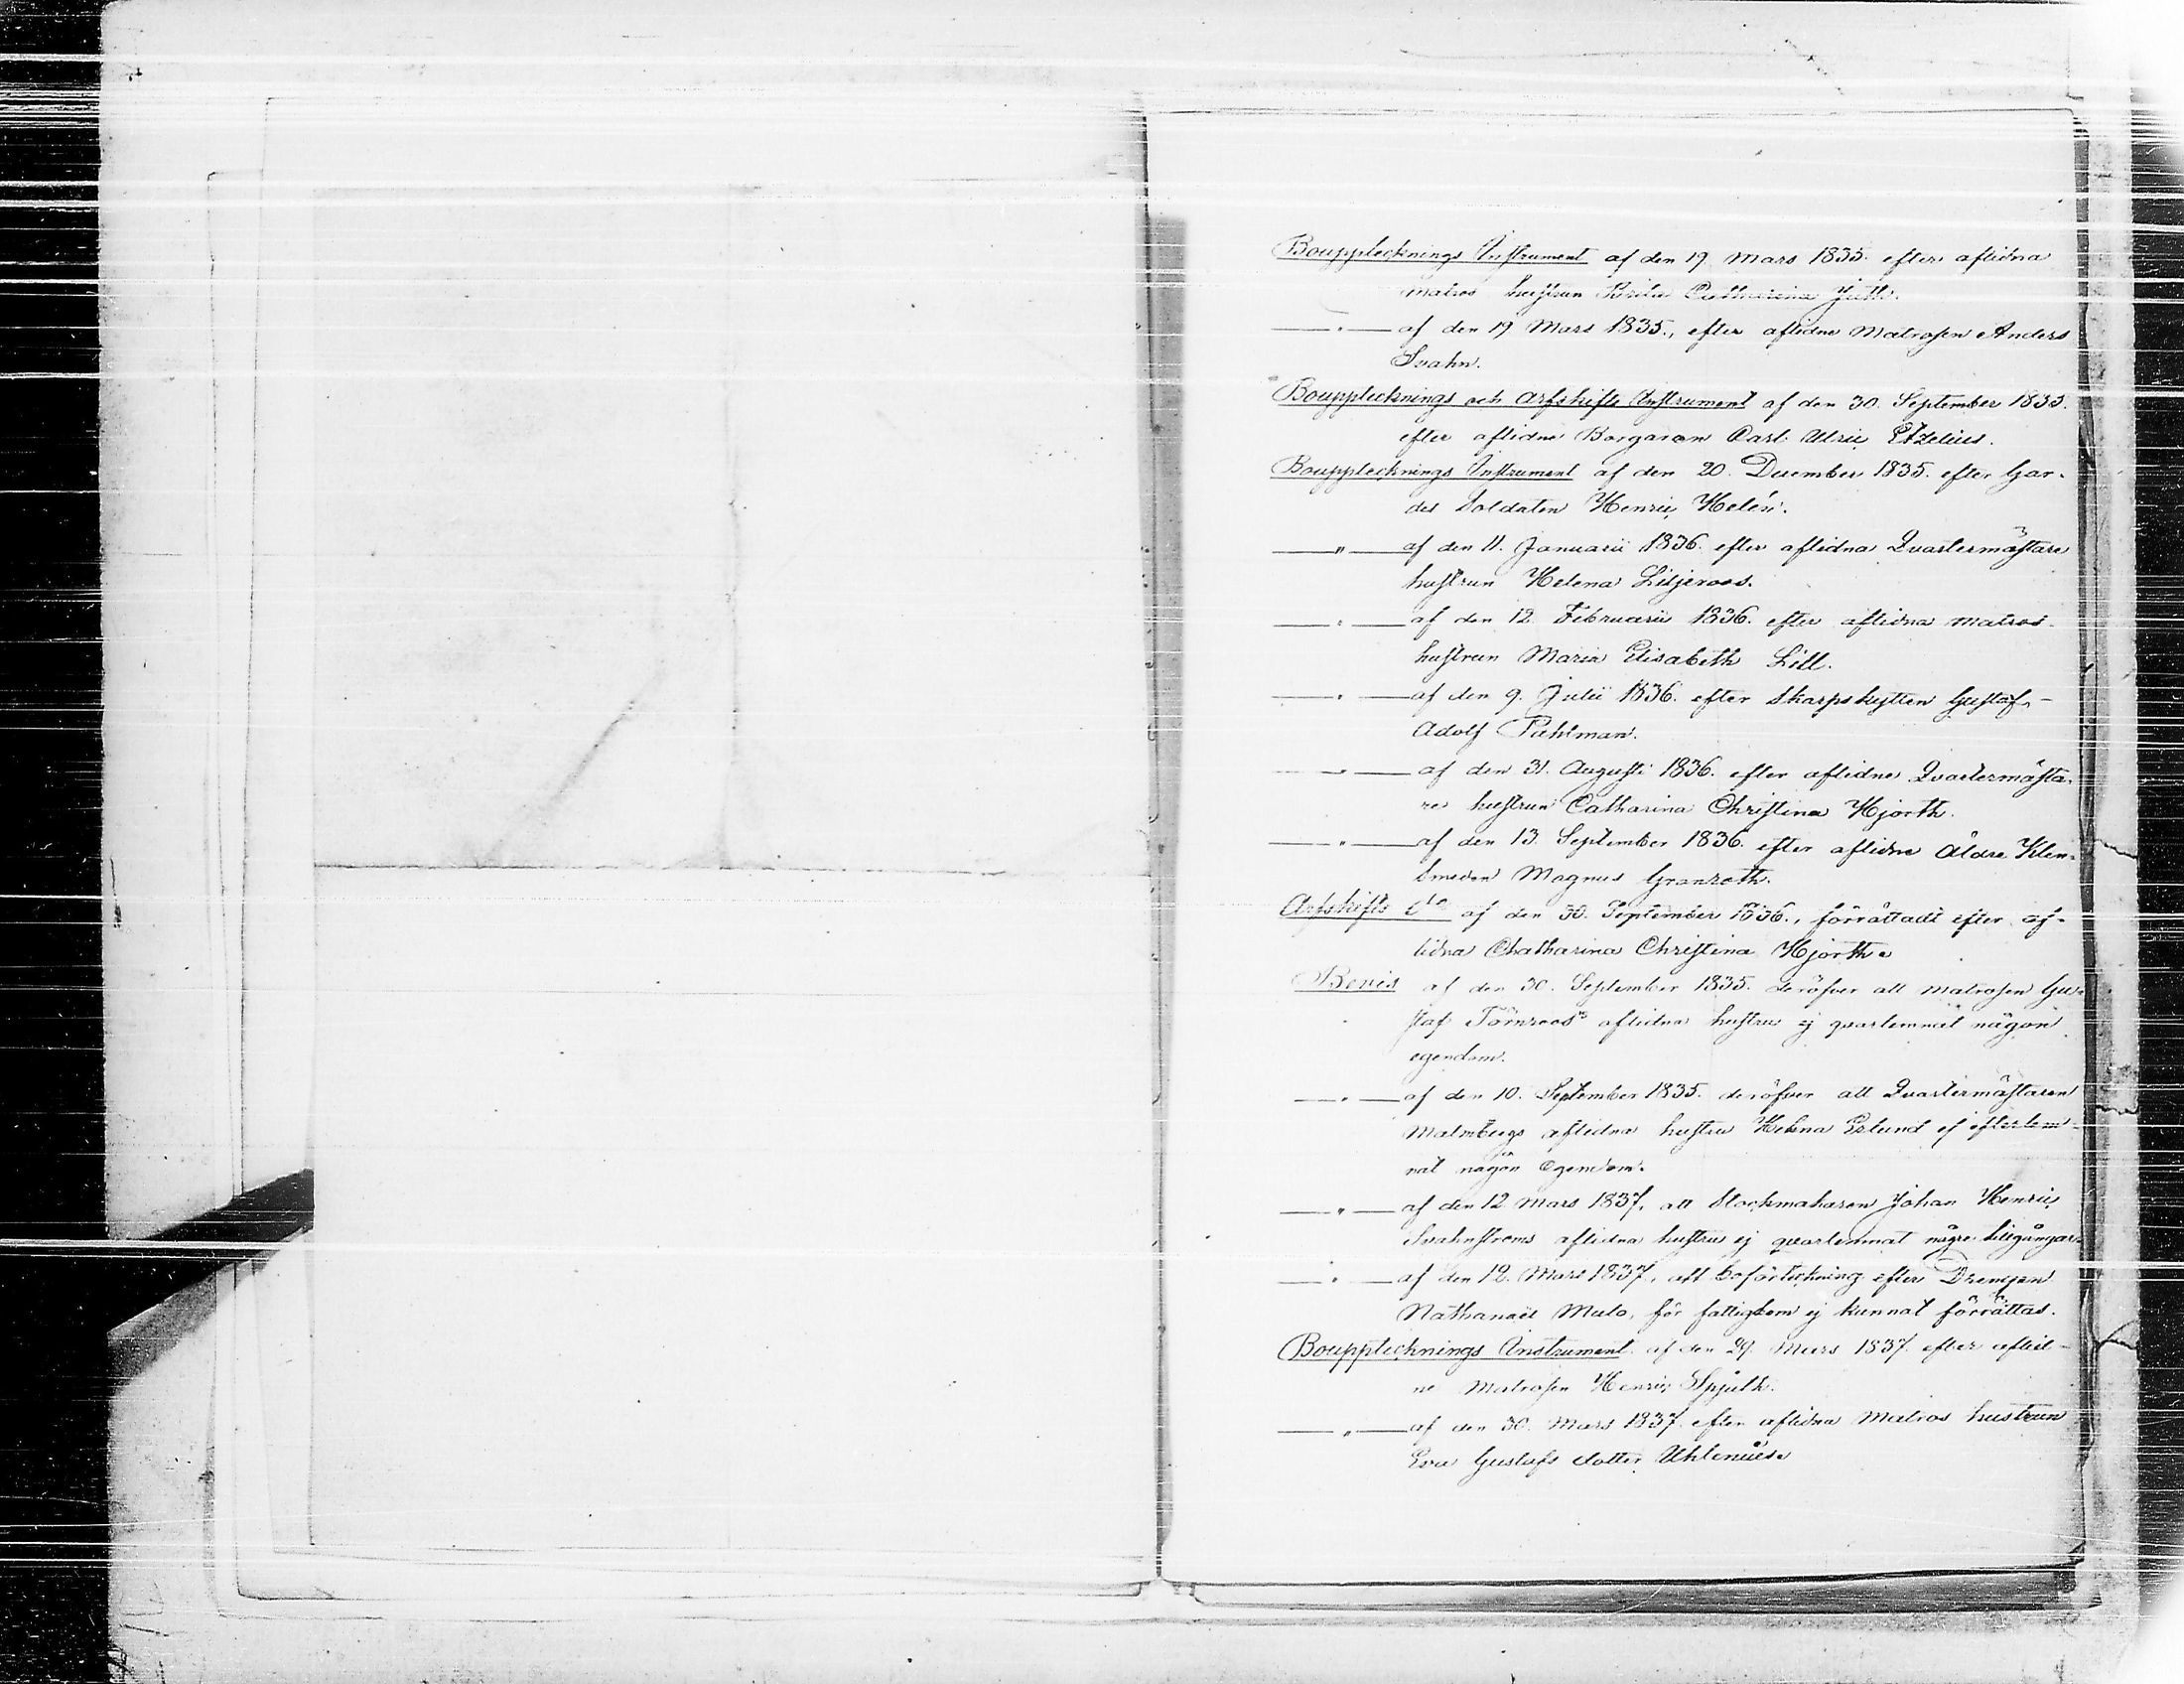 Boupptecknings Instrument af den 19 Mars 1835. efter aflidna
matros hustrun Brita Catharina Juth.
—"— af den 19 Mars 1835., efter aflidne Matrosen Anders
Svahn.
Boupptecknings och Arfskifts Instrument af den 30. September 1835.
efter aflidne Borgaren Carl Ulric Etzelius.
Bouppteckninge Instrument af den 20. December 1835. efter Gar-
des Soldaten Henric Helén.
—"— af den 11. Januarii 1836. efter aflidna Quartermästare
hustrun Helena Liljeroos.
—"— af den 12. Februarii 1836. efter aflidna matros-
hustrun Maria Elisabeth Lill.
—"— af den 9. Julii 1836. efter Skarpskytten Gustaf-
Adolf Påhlman.
—"— af den 31. Augusti 1836. efter aflidne Quartermästa-
re hustrun Catharina Christina Hjorth.
—"— af den 13. September 1836. efter aflidne Åldre Klen-
smeden Magnus Granroth.
Arfskifts dto af den 30. September 1836., förrättadt efter af-
lidna Chatharina Christina Hjorth.
Bevis af den 30. September 1835. deröfver att matrosen Gu-
staf Törnroos's aflidna hustru ej qvarlemnat någon
egendom.
—"— af den 10. September 1835. deröfver att Quartermästaren
Malmbergs aflidna hustru Helena Eslund ej efterlem-
nat någon Egendom.
—"— af den 12 Mars 1837, att blockmakaren Johan Henric
Svahnströms aflidna hustru ej qvarlemnat några tillgångar.
—"— af den 12. Mars 1837, att boförteckning efter Drengen
Nathanael Malo, för fattigdom ej kunnat förrättas.
Bouppteçknings Instrument af den 29. Mars 1837 efter aflid-
ne Matrosen Henric Spjuth.
—"— af den 30. Mars 1837. efter aflidna Matros hustrun
Eva Gustafs dotter